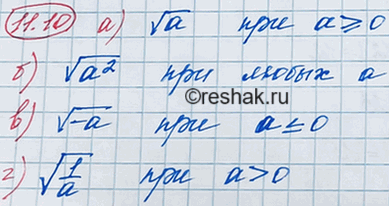 11.10 а) √a при a ≥ 0
б) √a² при любых a
©reshak.ru
в) √-a при a ≤ 0
г) √1/a при a > 0